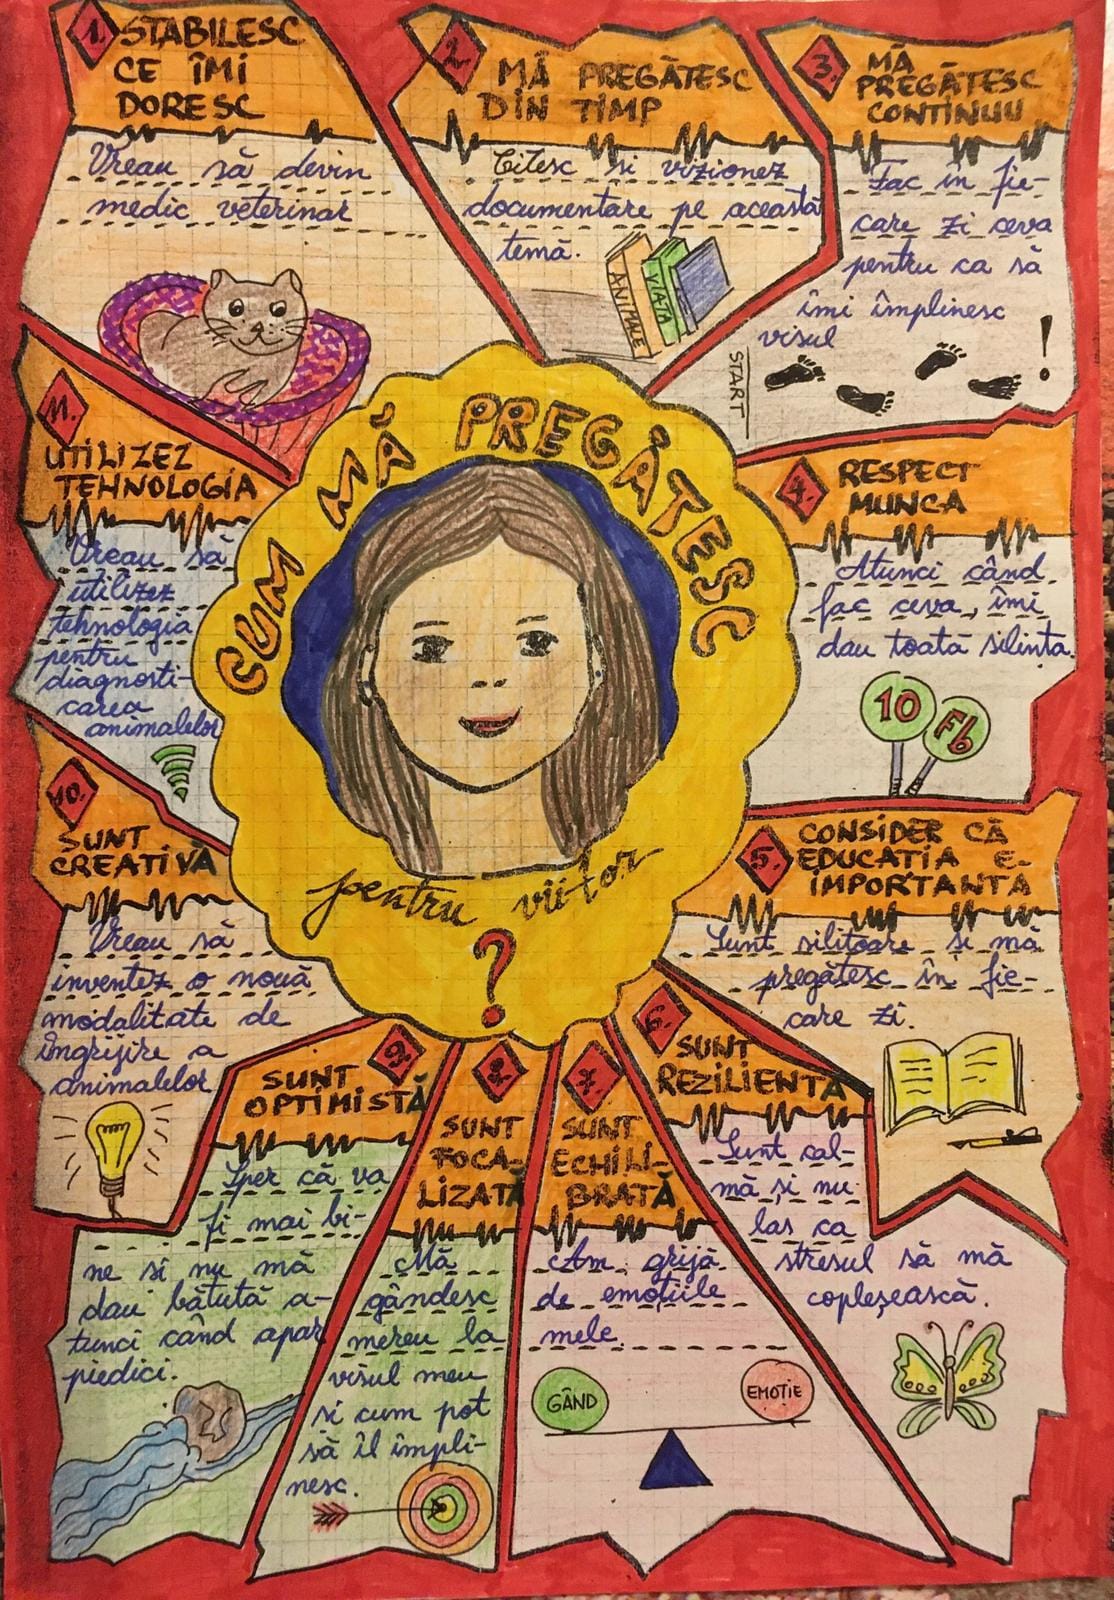 1. STABILESC
CE ÎMI
DORESC
Vreau să devin
medic veterinar
2. MĂ PREGĂTESC
DIN TIMP
Citesc si vizionez
documentare pe această
temă.
ANIMALE
VIAȚA
3. MĂ
PREGĂTESC
CONTINUU
Fac în fie-
care zi ceva
pentru ca să
îmi împlinesc
visul
START
!
4. RESPECT
MUNCA
Atunci când
fac ceva, îmi
dau toată silința.
10
Fb
5. CONSIDER CĂ
EDUCATIA E-
IMPORTANTA
Sunt silitoare și mă
pregătesc în fie-
care zi.
6. SUNT
REZILIENTĂ
Sunt cal-
mă și nu
las ca
stresul să mă
copleșească.
7. SUNT
ECHILI-
BRATĂ
Am grijă
de emoțiile
mele.
GÂND
EMOȚIE
8. SUNT
FOCA-
LIZATĂ
Mă
gândesc
mereu la
visul meu
si cum pot
să îl împli-
nesc.
9. SUNT
OPTIMISTĂ
Sper că va
fi mai bi-
ne si nu mă
dau bătută a-
tunci când apar
piedici.
10. SUNT
CREATIVĂ
Vreau să
inventez o nouă
modalitate de
îngrijire a
animalelor
11. UTILIZEZ
TEHNOLOGIA
Vreau să
utilizez
tehnologia
pentru
diagnosti-
carea
animalelor
CUM MĂ PREGĂTESC
pentru viitor
?